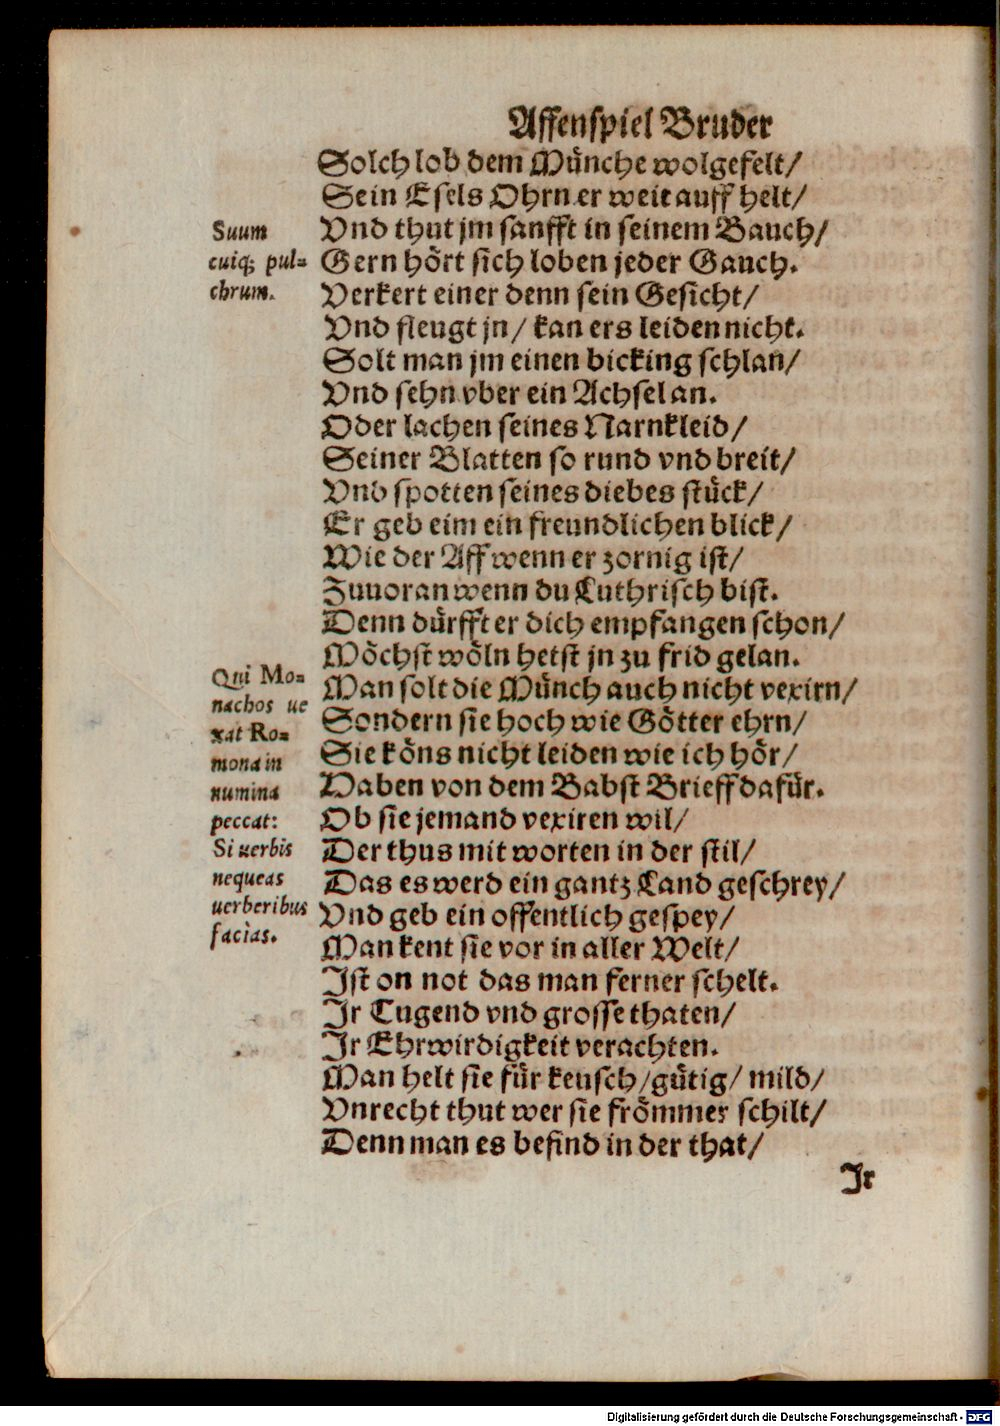 Affenspiel Bruder
Solch lob dem Münche wolgefelt/
Sein Esels Ohrn er weit auff helt/
Vnd thut jm sanfft in seinem Bauch/
Gern hört sich loben jeder Gauch.
Verkert einer denn sein Gesicht/
Vnd fleugt jn/ kan ers leiden nicht.
Solt man jm einen bicking schlan/
Vnd sehn vber ein Achsel an.
Oder lachen seines Narnkleid/
Seiner Blatten so rund vnd breit/
Vnd spotten seines diebes stück/
Er geb eim ein freundlichen blick/
Wie der Aff wenn er zornig ist/
Zuuoran wenn du Luthrisch bist.
Denn dürfft er dich empfangen schon/
Möchst wöln hetst jn zu frid gelan.
Man solt die Münch auch nicht vexirn/
Sondern sie hoch wie Götter ehrn/
Sie köns nicht leiden wie ich hör/
Haben von dem Babst Brieff dafür.
Ob sie jemand vexiren wil/
Der thus mit worten in der stil/
Das es werd ein gantz Land geschrey/
Vnd geb ein offentlich gespey/
Man kent sie vor in aller Welt/
Ist on not das man ferner schelt.
Ir Tugend vnd grosse thaten/
Ir Ehrwirdigkeit verachten.
Man helt sie für keusch/gütig/ mild/
Vnrecht thut wer sie frömmer schilt/
Denn man es befind in der that/
Ir
Suum
cuiq; pul=
chrum.
Qui Mo=
nachos ue
xat Ro=
mona in
numina
peccat:
Si uerbis
nequeas
uerberibus
facias.
Digitalisierung gefördert durch die Deutsche Forschungsgemeinschaft - DFG